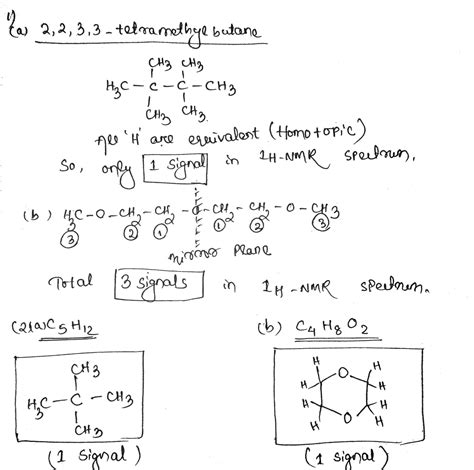 1)
(a) 2,2,3,3-tetramethyl butane
CH3 CH3
H3C - C - C - CH3
CH3 CH3
All 'H' are equivalent (Homotopic)
So, only 1 signal in 1H-NMR spectrum.
(b) H3C - O - CH2 - CH2 - O - CH2 - CH2 - O - CH3
3 2 1 1 2 3
mirror plane
Total 3 signals in 1H-NMR spectrum.
(2)(a) C5H12 (b) C4H8O2
CH3
H3C - C - CH3
CH3
H H
H O H
H H
H O H
(1 signal) (1 signal)